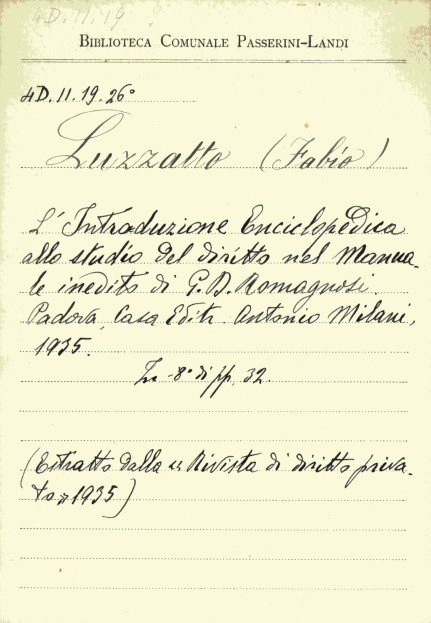 4D.11.19
BIBLIOTECA COMUNALE PASSERINI-LANDI
4D.11.19.26°
Luzzatto (Fabio)
L'Introduzione Enciclopedica
allo studio del diritto nel Manua-
le inedito di G. D. Romagnosi.
Padova, Casa Editr. Antonio Milani,
1935.
In-8° di pp. 32.
(Estratto dalla «Rivista di diritto priva-
to» 1935)